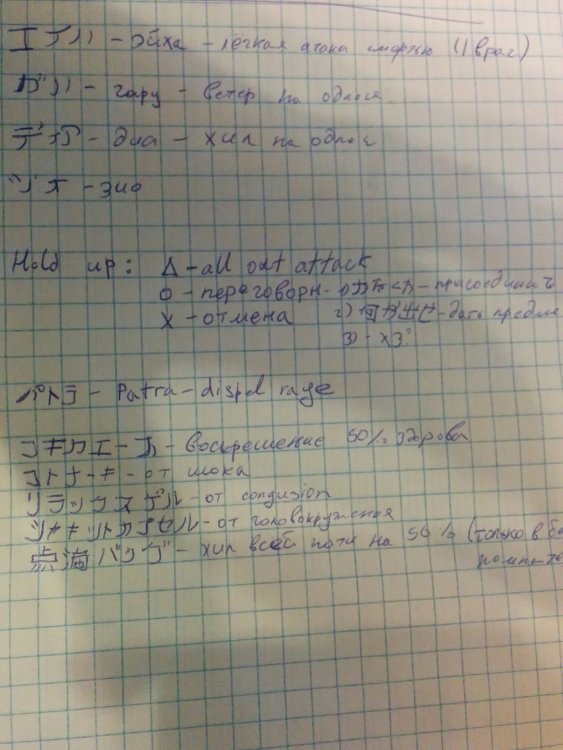 エイハ - эйха - легкая атака смертью (1 враг)
ガル - гару - ветер на одного
ディア - диа - хил на одного
ジオ - зио
Hold up: Δ - all out attack
О - переговорн. - 1) - присоединить
Х - отмена 2) 何か出せ - дать предме
3) - хз?
パトラ - Patra - dispel rage
- воскрешение 50% здоровья
- от шока
リラックスゲル - от confusion
- от головокружения
点滴バッグ - хил всей пати на 50% (только в